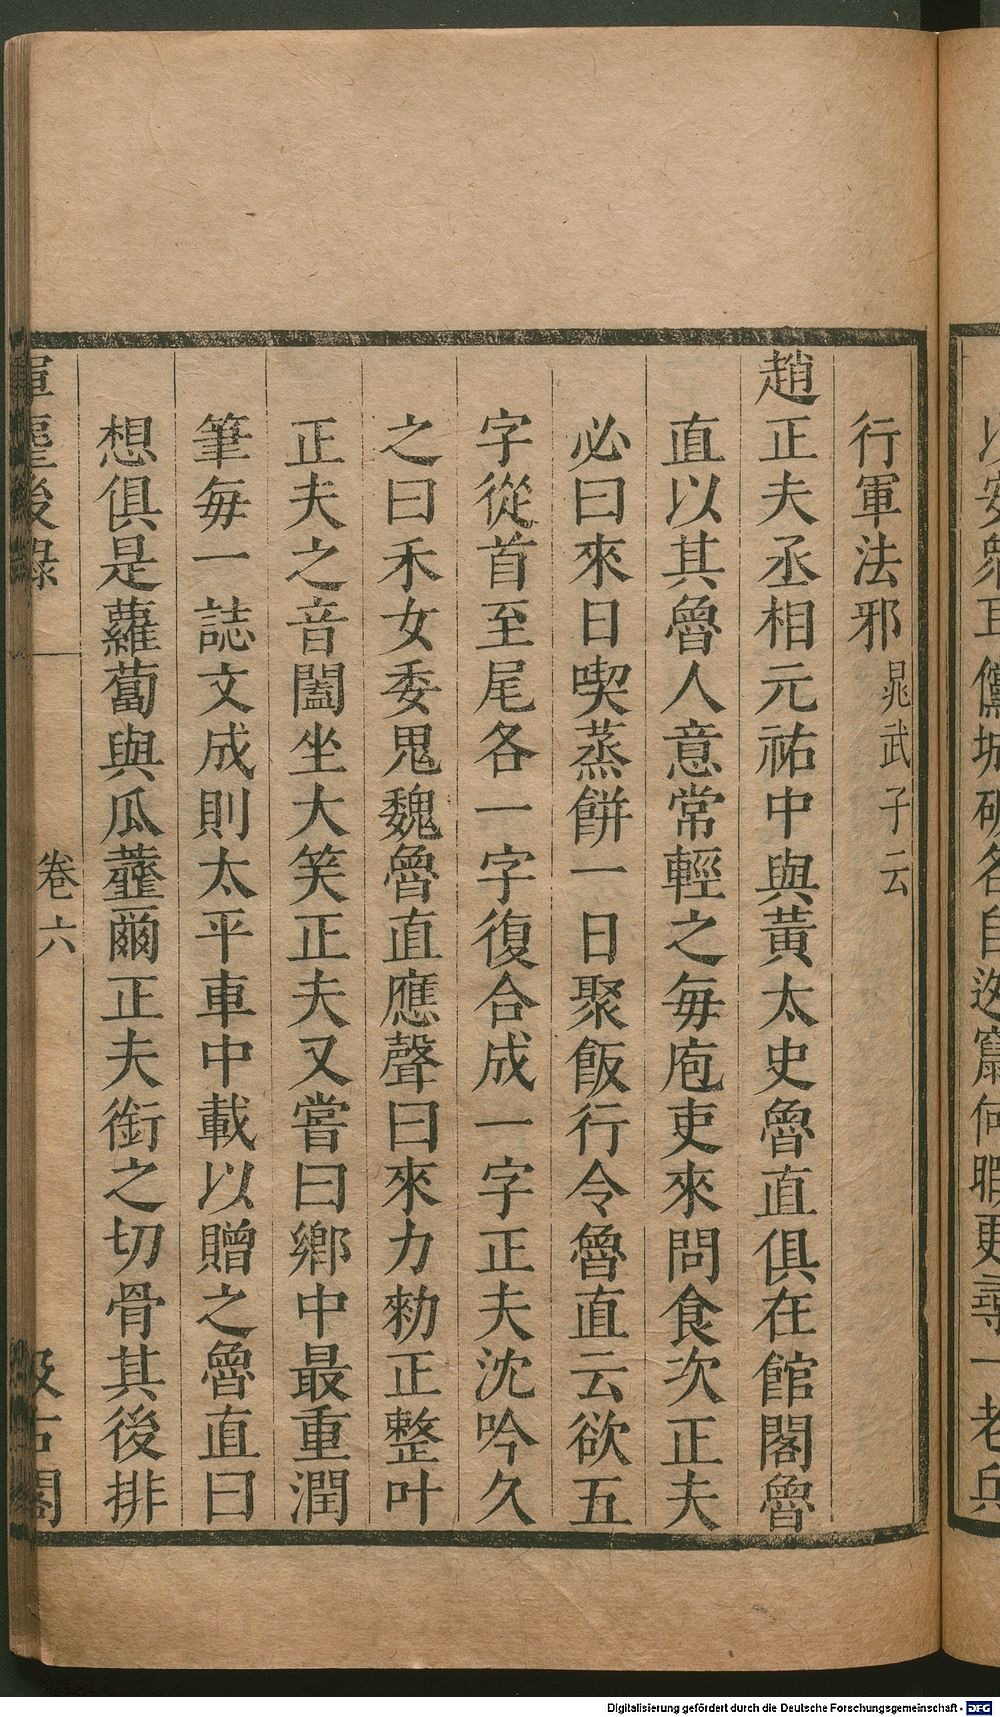 行軍法邪 晁武子云
趙正夫丞相元祐中與黃太史魯直俱在館閣魯
直以其魯人意常輕之每庖吏來問食次正夫
必曰來日喫蒸餅一日聚飯行令魯直云欲五
字從首至尾各一字復合成一字正夫沈吟久
之曰禾女委鬼魏魯直應聲曰來力勑正整叶
正夫之音闔坐大笑正夫又嘗曰鄉中最重潤
筆每一誌文成則太平車中載以贈之魯直曰
想俱是蘿蔔與瓜虀爾正夫銜之切骨其後排
卷六
Digitalisierung gefördert durch die Deutsche Forschungsgemeinschaft - DFG